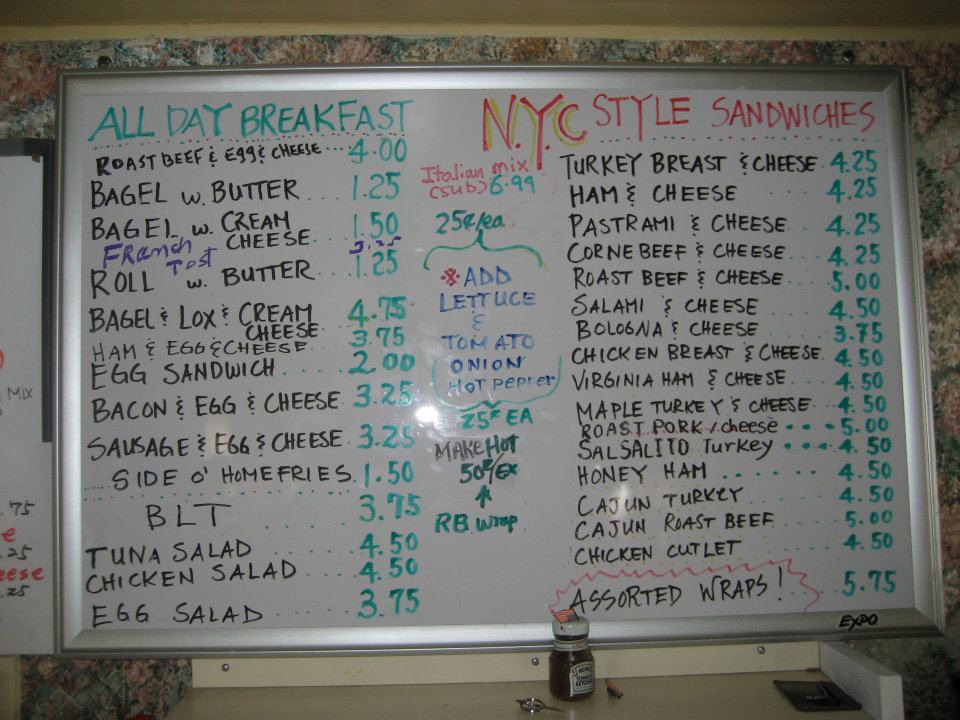 ALL DAY BREAKFAST
ROAST BEEF & Egg & CHEESE 4.00
BAGEL w. BUTTER 1.25
BAGEL w. CREAM CHEESE 1.50
FRanch Tost 3.25
ROLL w. BUTTER 1.25
BAGEL & LOX & CREAM CHEESE 4.75
HAM & EGG & CHEESE 3.75
EGG SANDWICH 2.00
BACON & EGG & CHEESE 3.25
SAUSAGE & EGG & CHEESE 3.25
SIDE O' HOMEFRIES 1.50
BLT 3.75
TUNA SALAD 4.50
CHICKEN SALAD 4.50
EGG SALAD 3.75
Italian mix
(sub) 6.99
25¢/ea
※ADD
LETTUCE
&
TOMATO
ONION
HOT pepper
25¢ EA
MAKE HOT
50¢/Ex
RB wrap
N.Y.C STYLE SANDWICHES
TURKEY BREAST & CHEESE 4.25
HAM & CHEESE 4.25
PASTRAMI & CHEESE 4.25
CORNE BEEF & CHEESE 4.25
ROAST BEEF & CHEESE 5.00
SALAMI & CHEESE 4.50
BOLOGNA & CHEESE 3.75
CHICKEN BREAST & CHEESE 4.50
VIRGINIA HAM & CHEESE 4.50
MAPLE TURKEY & CHEESE 4.50
ROAST PORK / cheese 5.00
SALSALITO Turkey 4.50
HONEY HAM 4.50
CAJUN TURKEY 4.50
CAJUN ROAST BEEF 5.00
CHICKEN CUTLET 4.50
ASSORTED WRAPS! 5.75
EXPO
MIX
.75
e
.25
eese
.25
HEINZ
TOMATO
KETCHUP